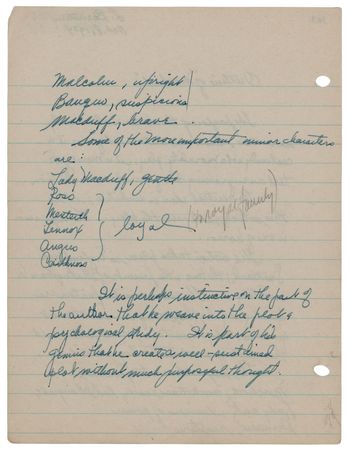 Malcolm, upright
Banquo, suspicious
Macduff, brave
Some of his more important minor characters
are:
Lady Macduff, gentle
Ross
Menteath
Lennox
Angus
Caithness
loyal
(to royal family)
It is perhaps instinctive on the part of
the author that he weave into the plot a
psychological study. It is part of his
genius that he creates a well-sustained
plot without much purposeful thought.